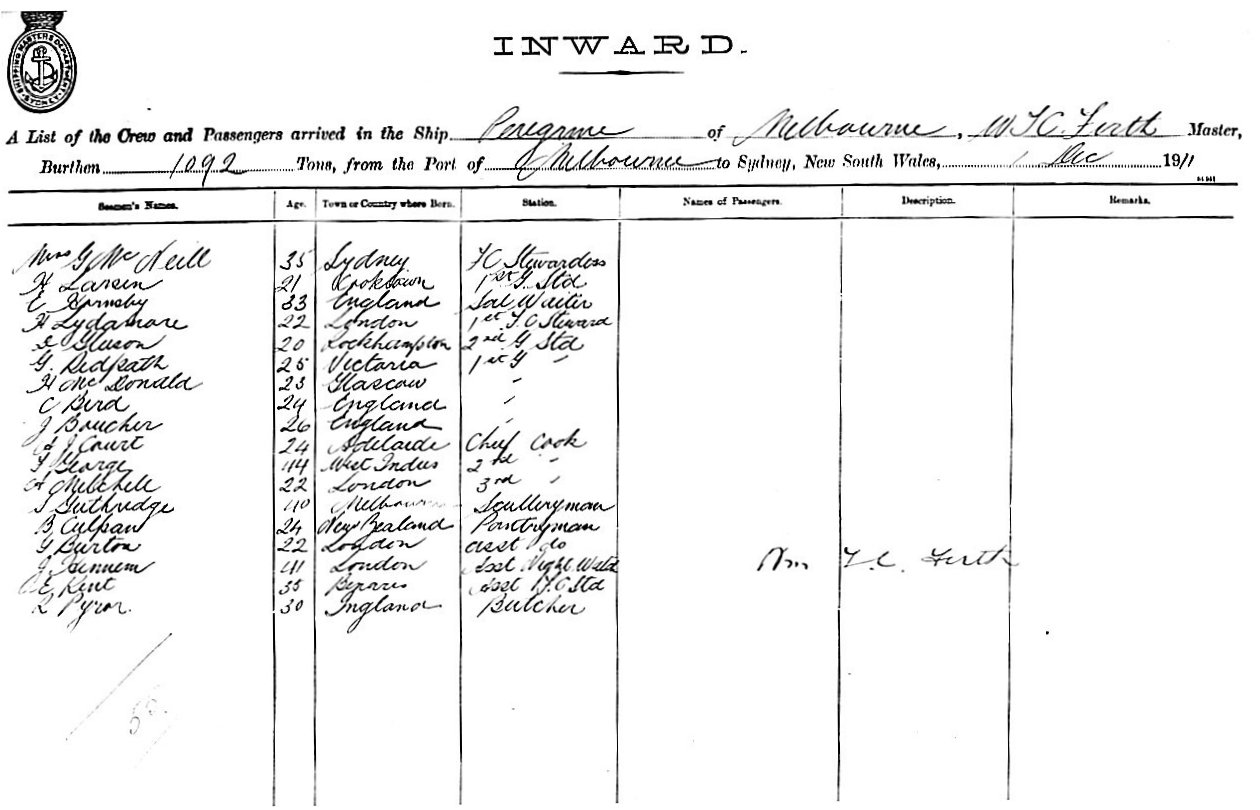 SHIPPING MASTERS DEPARTMENT SYDNEY
INWARD.
A List of the Crew and Passengers arrived in the Ship Peregrine of Melbourne, W F C Firth Master,
Burthen 1092 Tons, from the Port of Melbourne to Sydney, New South Wales, 1 Dec 1911
Seamen's Names. Age. Town or Country where Born. Station. Names of Passengers. Description. Remarks.
Mrs G Mc Neill 35 Sydney F C Stewardess
H Larsen 21 Cooktown 1st G Std
E Hornsby 33 England Sal Waiter
H Lydamore 22 London 1st F. C Steward
Gleeson 20 Rockhampton 2nd G Std
G. Redpath 25 Victoria 1st G "
H Mc Donald 23 Glascow "
C Bird 24 England "
J Boucher 26 England "
A J Court 24 Adelaide Chief Cook
F George 44 West Indies 2nd "
A Mitchell 22 London 3rd "
S Guthridge 40 Melbourne Sculleryman
B Culpan 24 New Zealand Pantryman
G Burton 22 London asst do
J. Hennem 41 London Asst Night Watch
E Kent 35 Asst F. C Std
R Pyror. 30 England Butcher
Wm F. C. Firth
50